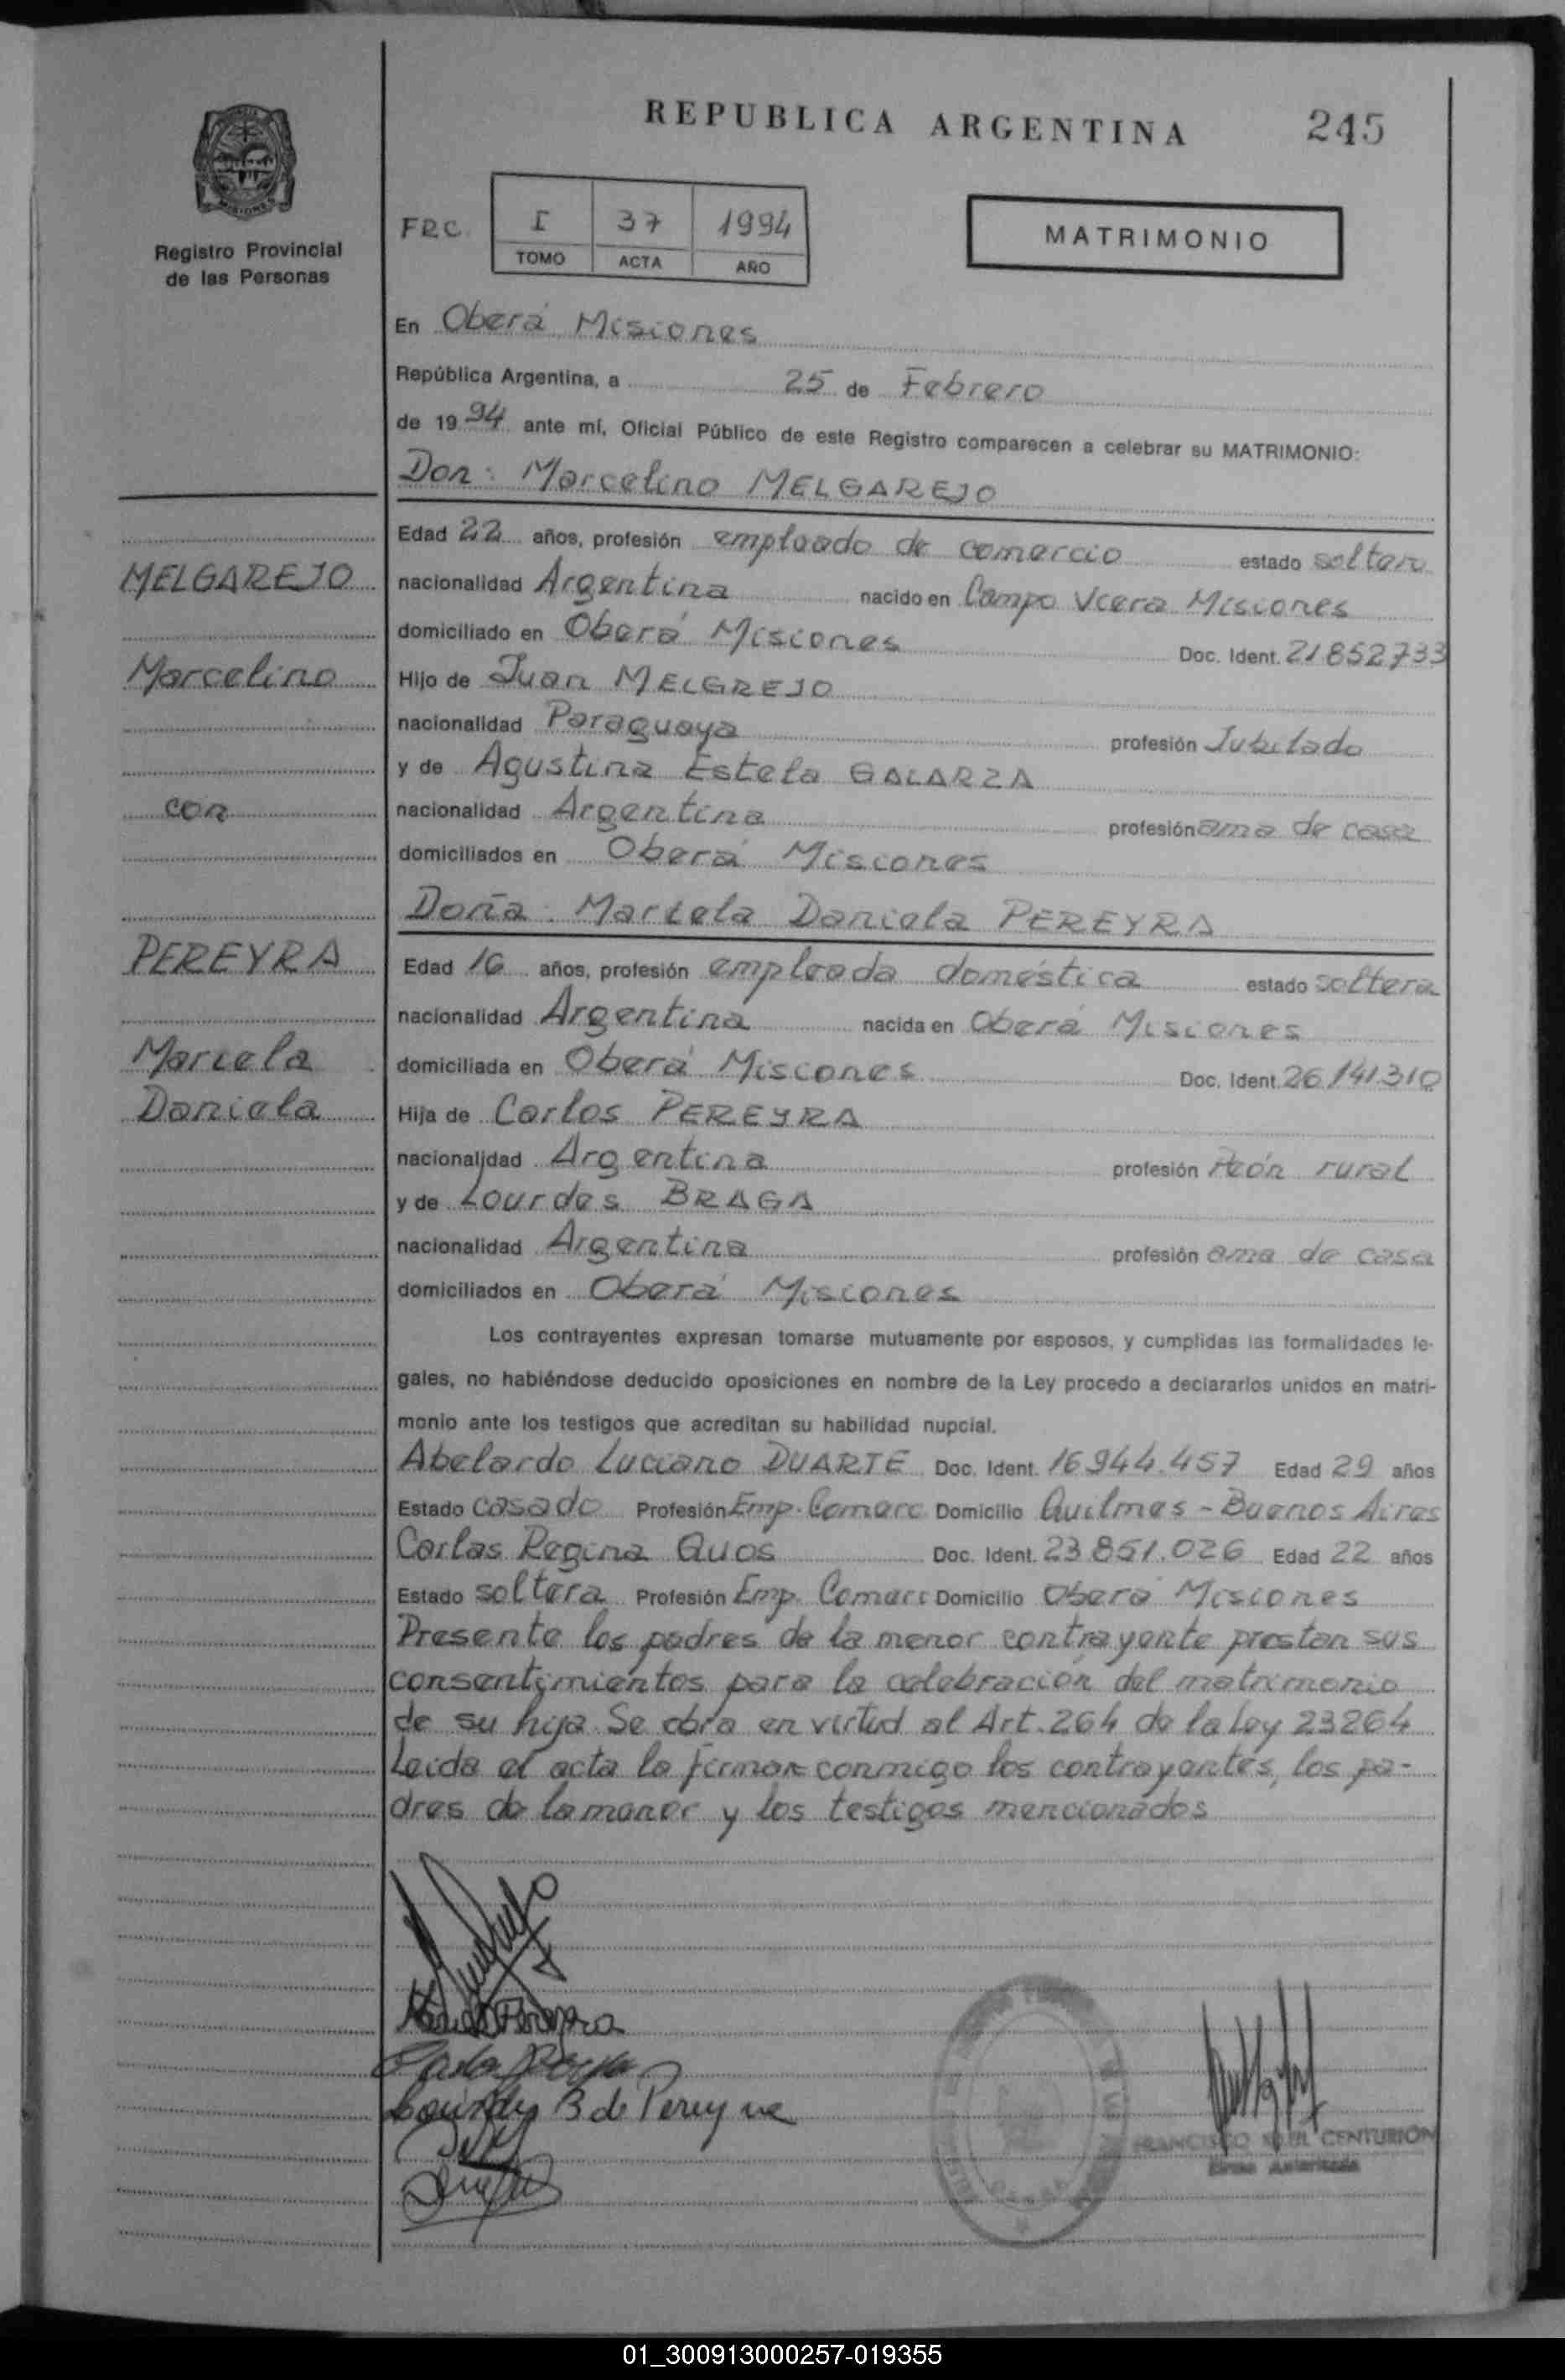 REPUBLICA ARGENTINA
245
MISIONES
Registro Provincial
de las Personas
FRC
I 37 1994
TOMO ACTA AÑO
MATRIMONIO
En Oberá Misiones
República Argentina, a 25 de Febrero
de 1994 ante mí, Oficial Público de este Registro comparecen a celebrar su MATRIMONIO:
Don: Marcelino MELGAREJO
Edad 22 años, profesión empleado de comercio estado soltero
MELGAREJO
nacionalidad Argentina nacido en Campo Viera Misiones
domiciliado en Oberá Misiones Doc. Ident. 21852733
Marcelino
Hijo de Juan MELGREJO
nacionalidad Paraguaya profesión Jubilado
y de Agustina Estela GALARZA
con
nacionalidad Argentina profesión ama de casa
domiciliados en Oberá Misiones
Doña: Mariela Daniela PEREYRA
PEREYRA
Edad 16 años, profesión empleada doméstica estado soltera
nacionalidad Argentina nacida en Oberá Misiones
Mariela
domiciliada en Oberá Misiones Doc. Ident. 26141310
Daniela
Hija de Carlos PEREYRA
nacionalidad Argentina profesión Peón rural
y de Lourdes BRAGA
nacionalidad Argentina profesión ama de casa
domiciliados en Oberá Misiones
Los contrayentes expresan tomarse mutuamente por esposos, y cumplidas las formalidades le-
gales, no habiéndose deducido oposiciones en nombre de la Ley procedo a declararlos unidos en matri-
monio ante los testigos que acreditan su habilidad nupcial.
Abelardo Luciano DUARTE Doc. Ident. 16944.457 Edad 29 años
Estado casado Profesión Emp. Comerc Domicilio Quilmes - Buenos Aires
Carlas Regina Quos Doc. Ident. 23851.026 Edad 22 años
Estado soltera Profesión Emp. Comerc Domicilio Oberá Misiones
Presente los padres de la menor contrayente prestan sus
consentimientos para la celebración del matrimonio
de su hija. Se obra en virtud al Art. 264 de la Ley 23264
Leida el acta la firman conmigo los contrayentes, los pa-
dres de la menor y los testigos mencionados
Lourdes B de Pereyra
FRANCISCO CENTURION
Firma Autorizada
01_300913000257-019355